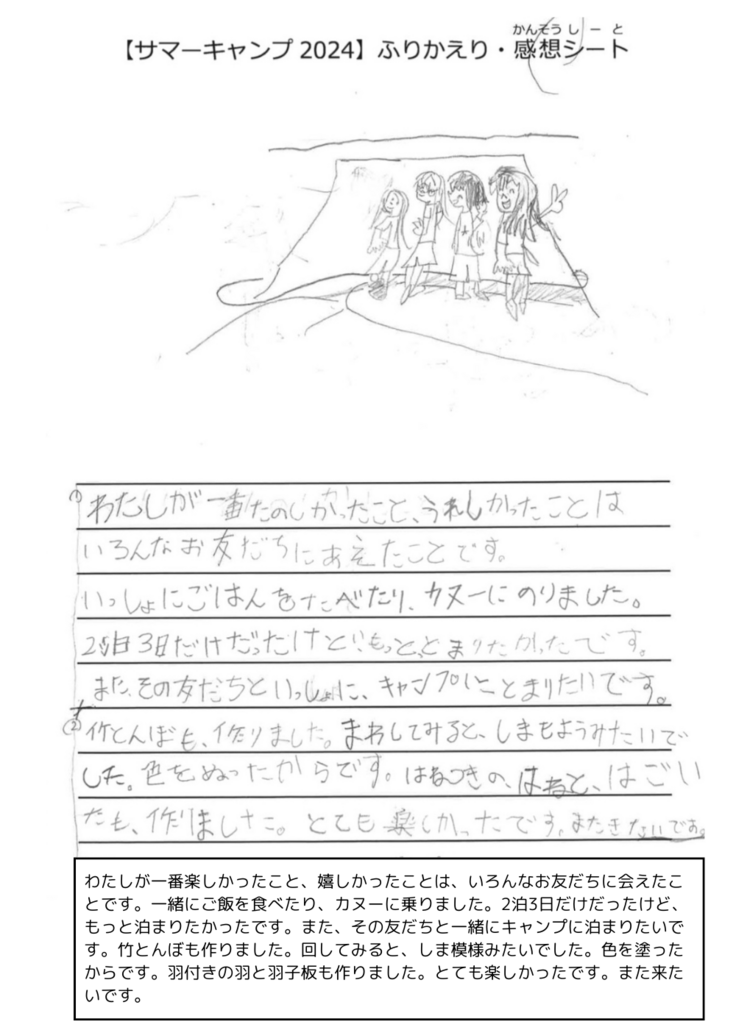 かんそうしーと
【サマーキャンプ 2024】ふりかえり・感想シート
① わたしが一番たのしかったこと、うれしかったことは
いろんなお友だちにあえたことです。
いっしょにごはんをたべたり、カヌーにのりました。
2泊3日だけだったけど、もっと、とまりたかったです。
また、その友だちといっしょに、キャンプにとまりたいです。
② 竹とんぼも、作りました。まわしてみると、しまもようみたいで
した。色をぬったからです。はねつきの、はねと、はごい
たも、作りました。とても楽しかったです。またきたいです。
わたしが一番楽しかったこと、嬉しかったことは、いろんなお友だちに会えたこ
とです。一緒にご飯を食べたり、カヌーに乗りました。2泊3日だけだったけど、
もっと泊まりたかったです。また、その友だちと一緒にキャンプに泊まりたいで
す。竹とんぼも作りました。回してみると、しま模様みたいでした。色を塗った
からです。羽付きの羽と羽子板も作りました。とても楽しかったです。また来た
いです。